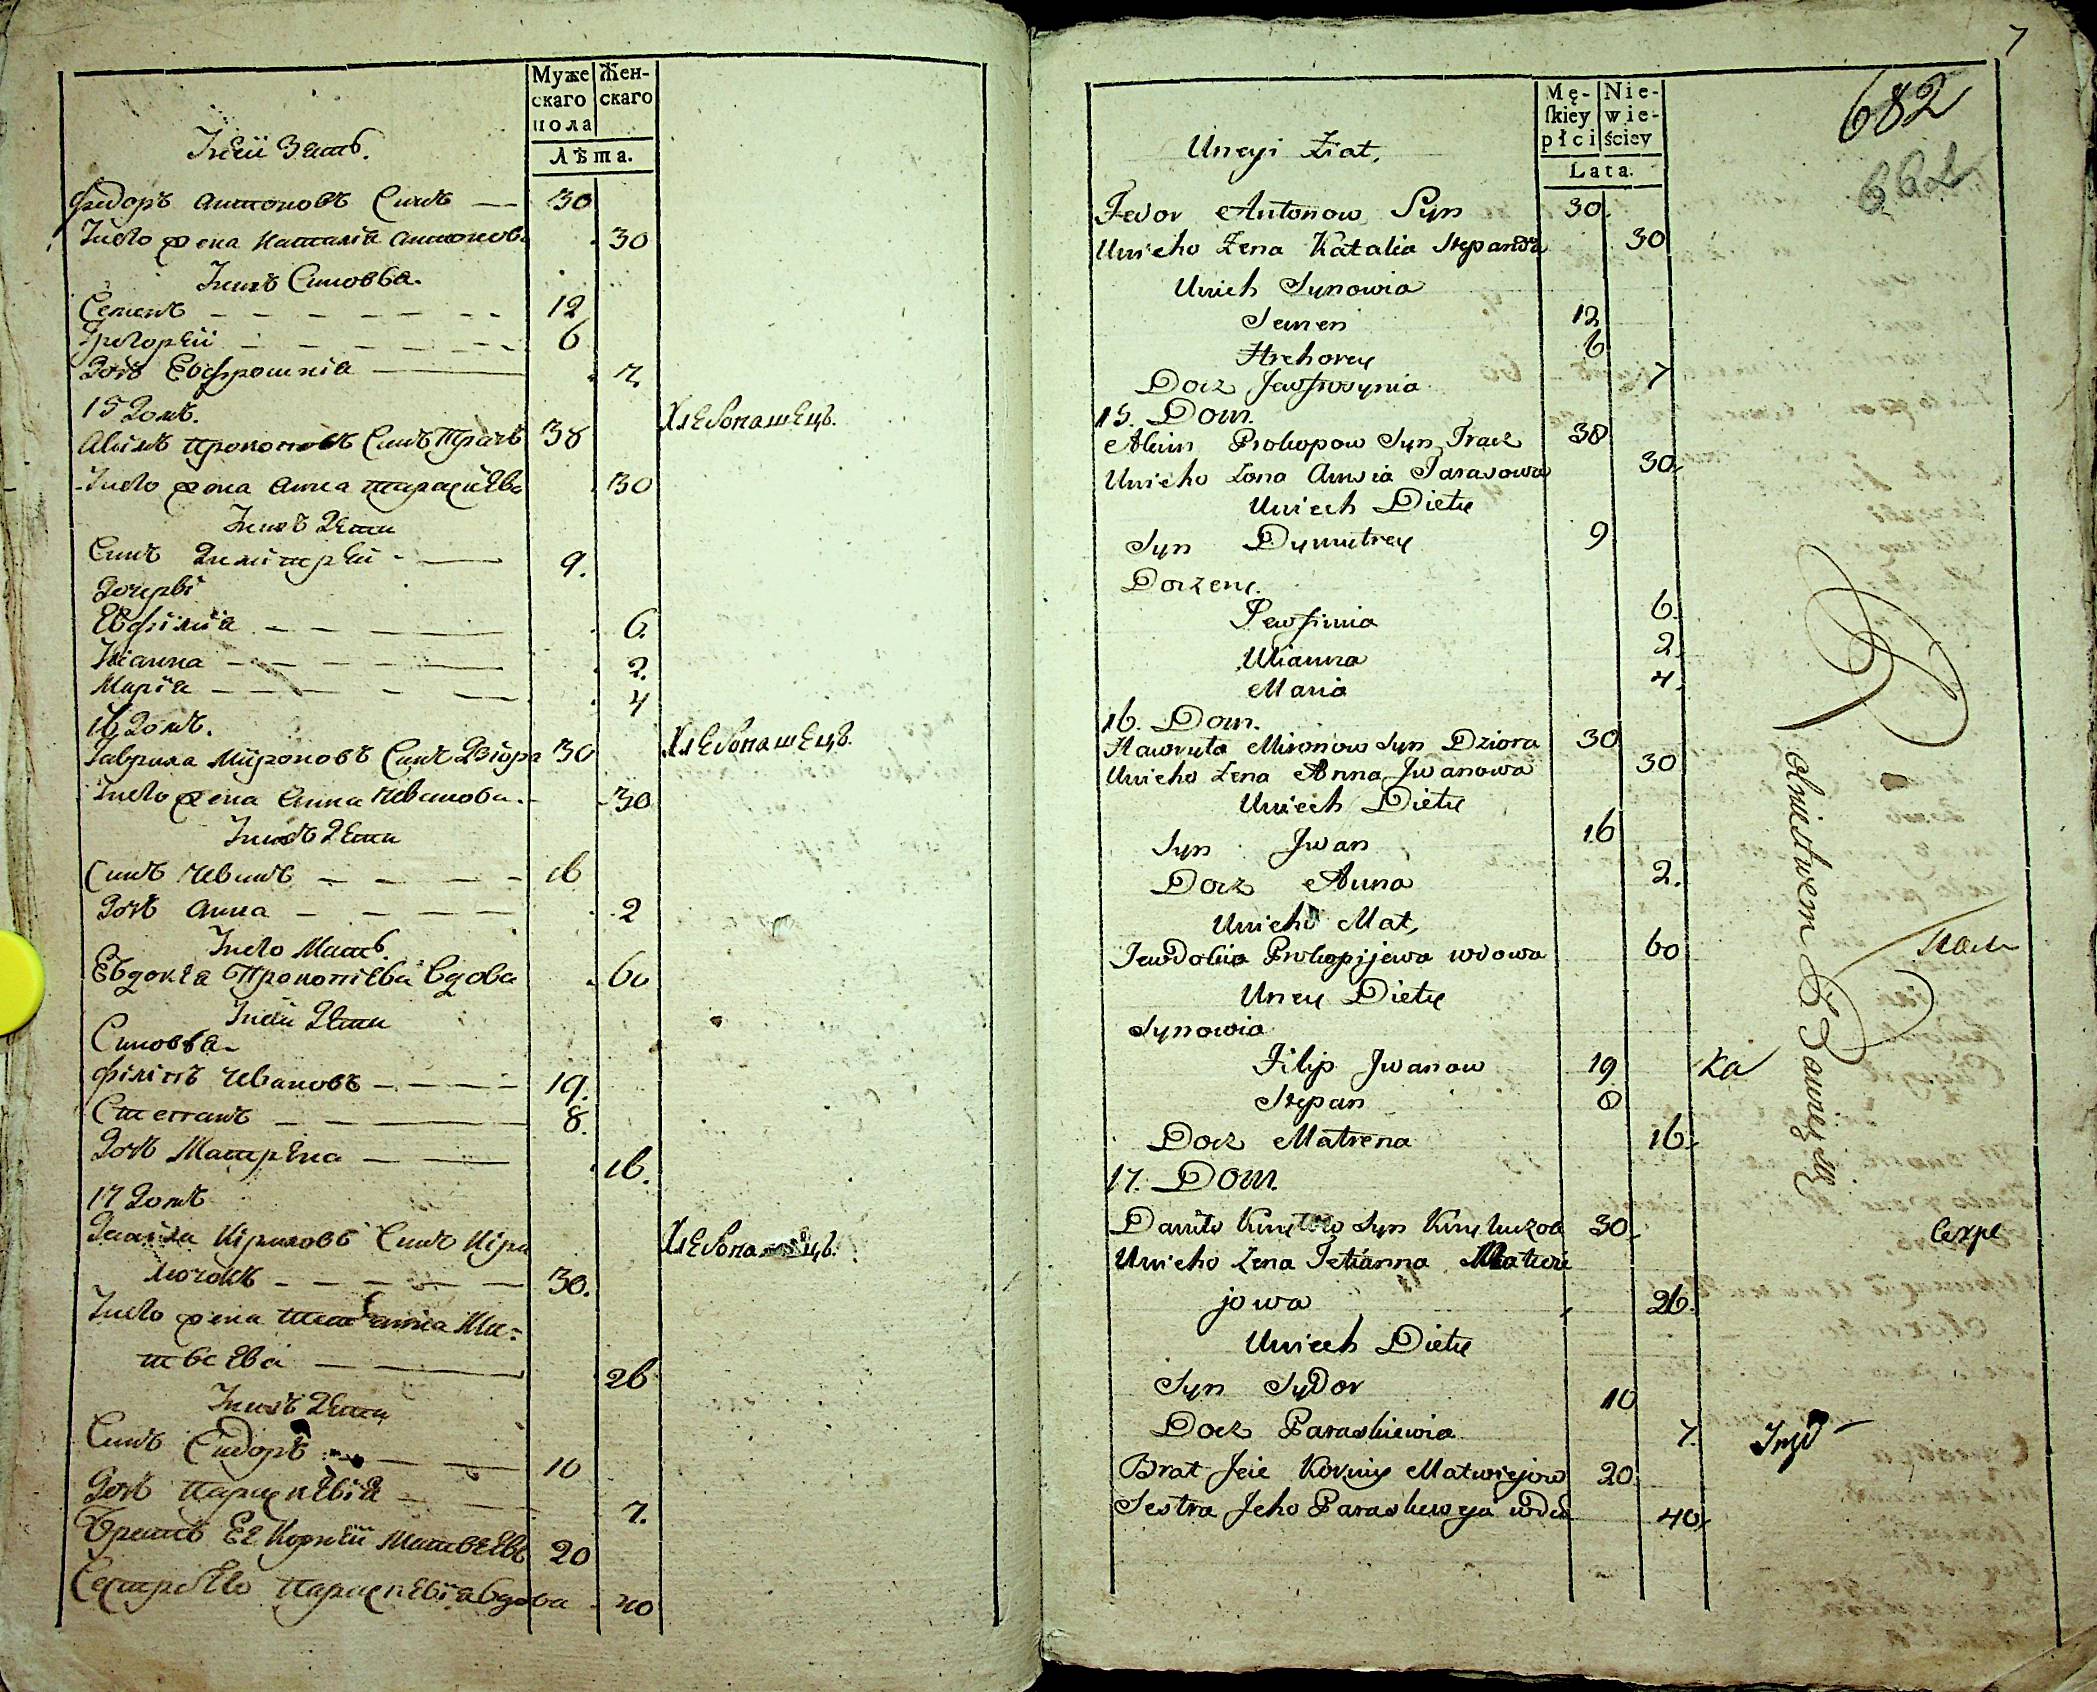 Муже скаго пола
Жен- скаго
Лѣта.
Унеіи Зять.
Федоръ антоновъ Синъ — 30
Унего жена Наталія антонов. 30
Унихъ Синовья.
Семенъ — 12
Григорѣй — 6
Дочь Евфросинія — 7.
15 Домъ.
Акимъ Прокоповъ Синъ Ткачъ 38 Хлебопашецъ.
Унего жена Анна Тарасиева 30
Унихъ Дѣти
Синъ Димитрѣй — 9.
Дочери
Евфимія — 6.
Уліанна — 2.
Марія — 4
16 Домъ.
Гаврила Мироновъ Синъ Дзіора 30 Хлебопашецъ.
Унего жена Анна Иванова. 30
Унихъ Дѣти
Синъ Иванъ — 16
Дочь Анна — 2
Унего Мать.
Евдокіа Прокопіева Вдова 60
Унеи Дѣти
Синовья
Филипъ Ивановъ — 19.
Степанъ — 8.
Дочь Матрѣна — 16.
17 Домъ
Данила Кириловъ Синъ Кири Хлебопашецъ.
лючокъ — 30.
Унего жена Татіанна Ма-
твѣева — 26
Унихъ Дѣти
Синъ Сидоръ — 10
Дочь Параскевія — 7.
Братъ Ее Корнѣй Матвѣевъ 20
Сестра Его Параскевіа вдова 40
7
682
662
Mę- skiey płci
Nie- wie- ściey
Lata.
Uneyi Ziat,
Fedor Antonow Syn 30.
Unieho Żena Natalia Stepanowa 30
Unich Synowia
Semen 12
Hrehorey 6
Docz Jewfrosynia 7
15. Dom.
Akim Prokopow Syn Tkacz 38
Unieho Żona Anna Tarasowa 30.
Uniech Diety
Syn Dymitrey 9
Doczery.
Jewfimia 6.
Ulianna 2.
Maria 4.
16. Dom.
Hawryło Mironow Syn Dziora 30
Unieho Żena Anna Jwanowa 30
Uniech Diety
Syn Jwan 16
Docz Anna 2.
Unieho Mat,
Jewdokia Prokopijewa wdowa 60
Uney Diety
Synowia
Filip Jwanow 19
Stepan 8
Docz Matrena 16.
17. Dom.
Daniło Kiryłow Syn Kiryluczok 30.
Unieho Żena Tetianna Matwie
jowa 26.
Uniech Diety
Syn Sydor 10
Docz Paraskiewia 7.
Brat Jeie Korniy Matwiejow 20
Sestra Jeho Paraskeweja wdo 40.